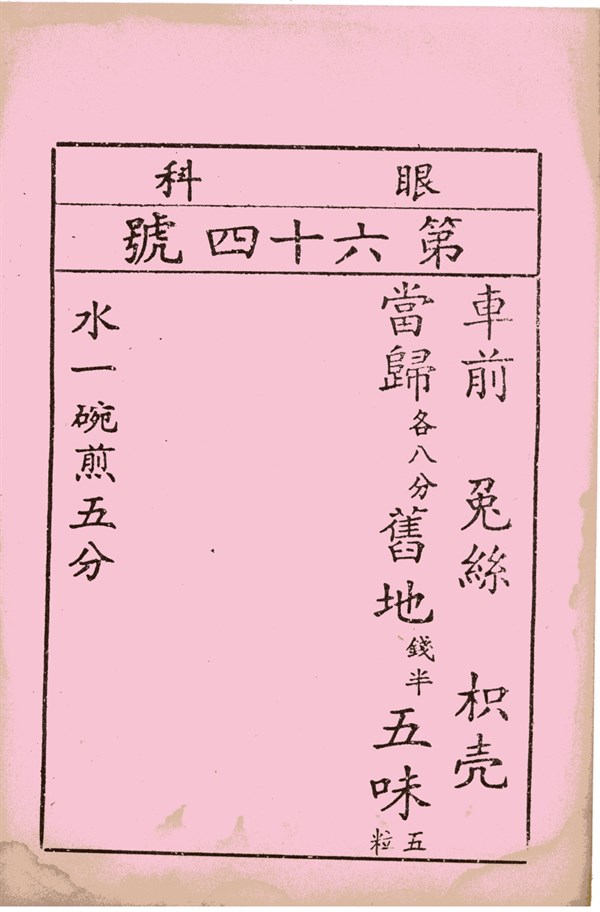 眼科
第六十四號
車前 兔絲 枳壳
當歸各八分舊地錢半五味五粒
水一碗煎五分